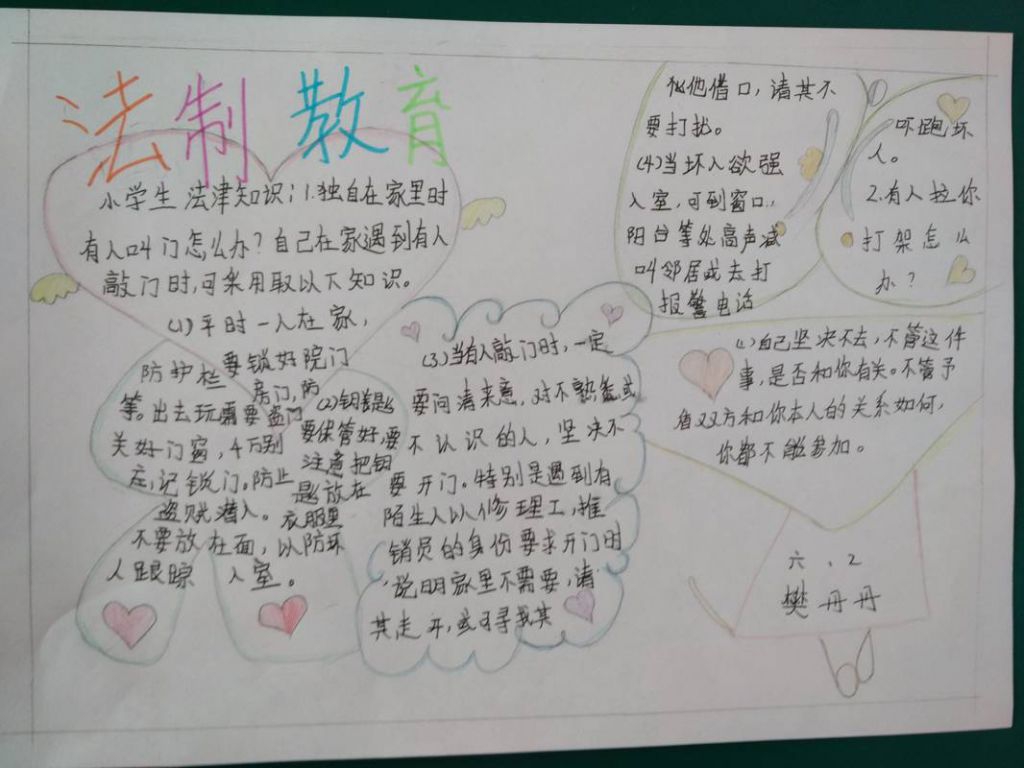 法制教育
小学生法津知识：1.独自在家里时
有人叫门怎么办？自己在家遇到有人
敲门时，可采用取以下知识。
(1)平时一人在家，
要锁好院门
房门，防
盗门
防护栏
等。出去玩需要
关好门窗，千万别
忘记锁门。防止
盗贼潜入。
(2)钥匙
要保管好，要
注意把钥
匙放在
衣服里
不要放在面，以防坏
人跟踪入室。
(3)当有人敲门时，一定
要问清来意，对不熟悉或
不认识的人，坚决不
要开门。特别是遇到有
陌生人以修理工，推
销员的身份要求开门时
说明家里不需要，请
其走开，或可寻找其
他借口，请其不
要打扰。
(4)当坏人欲强
入室，可到窗口，
阳台等处高声减
叫邻居或去打
报警电话
吓跑坏
人。
2.有人拉你
打架怎么
办？
(1)自己坚决不去，不管这件
事，是否和你有关。不管予
盾双方和你本人的关系如何，
你都不能参加。
六．2
樊丹丹